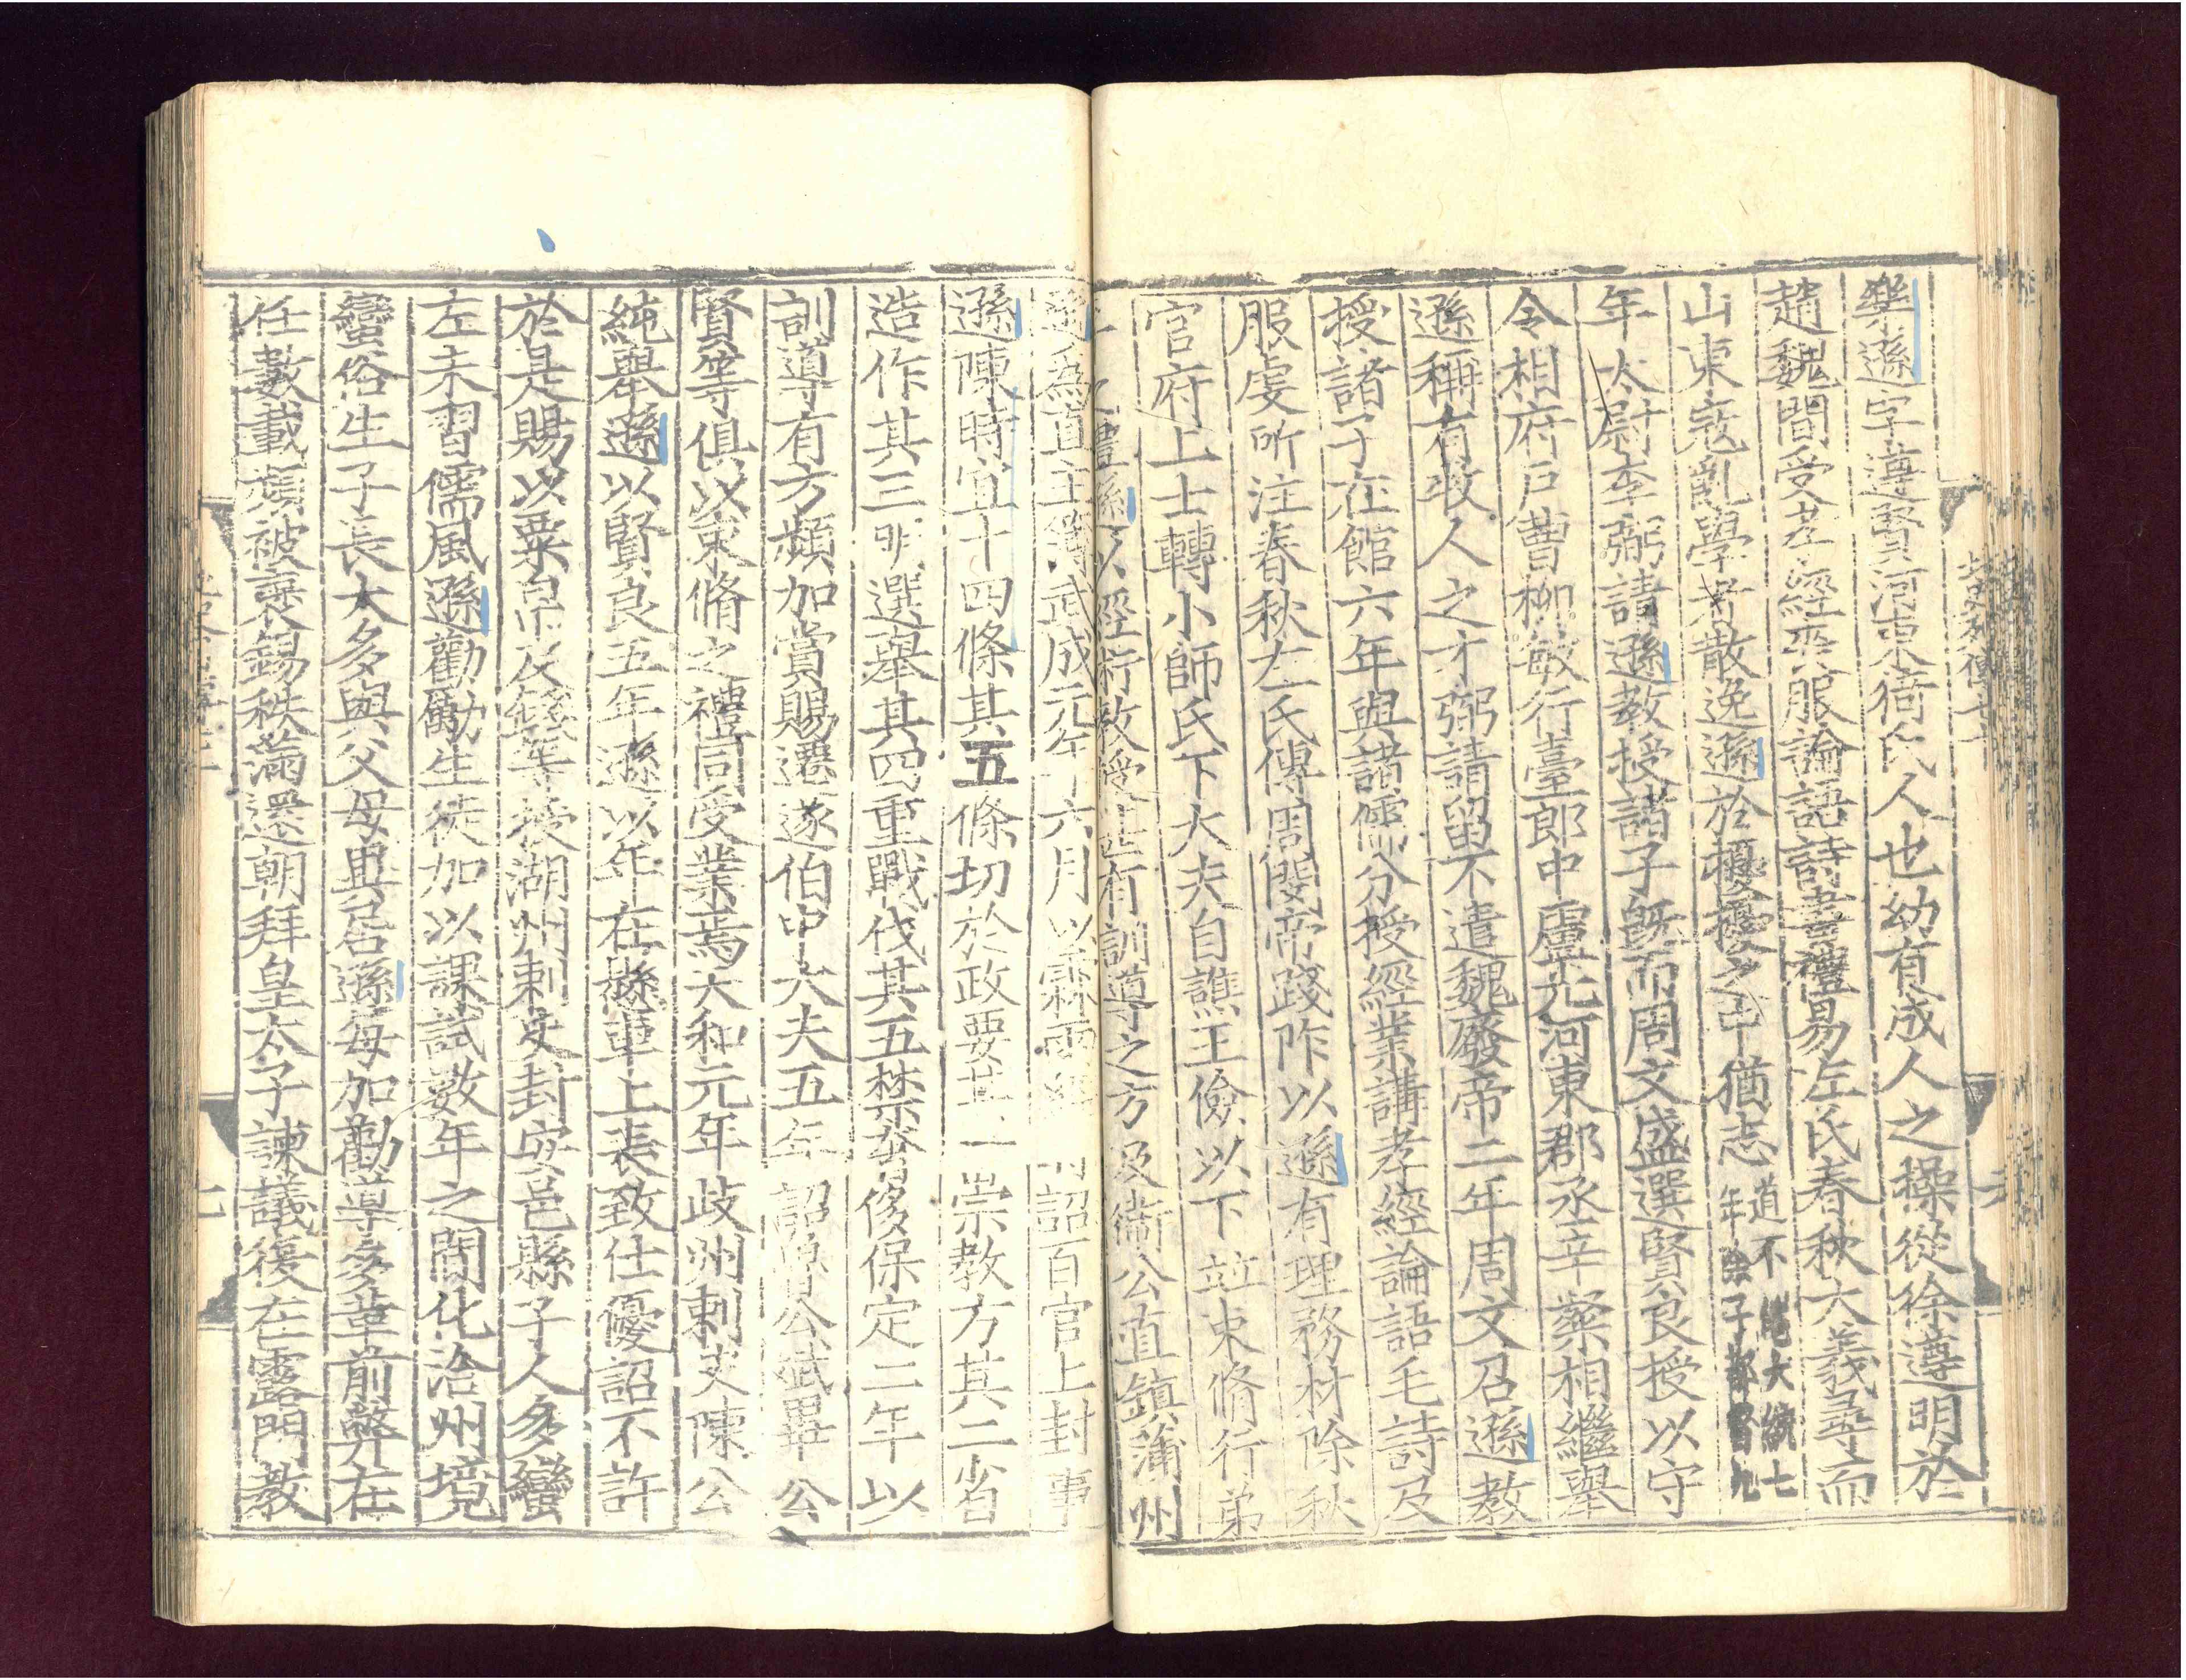 樂遜字遵賢河東猗氏人也幼有成人之操從徐遵明於
趙魏間受孝經喪服論語詩書禮易左氏春秋大義尋而
山東寇亂學者散逸遜於擾擾之中猶志道不絕大統七
年除子都督九
年太尉李弼請遜教授諸子既而周文盛選賢良授以守
令相府戶曹柳敏行臺郎中盧光河東郡丞辛粲相繼舉
遜稱有牧人之才弼請留不遣魏廢帝二年周文召遜教
授諸子在館六年與諸儒分授經業講孝經論語毛詩及
服虔所注春秋左氏傳周閔帝踐阼以遜有理務材除秋
官府上士轉小師氏下大夫自譙王儉以下並束脩行弟
子之禮遜以經術教授甚有訓導之方及衛公直鎮蒲州
遜為直主簿武成元年六月以霖雨經時詔百官上封事
遜陳時宜十四條其五條切於政要其一崇教方其二省
造作其三明選舉其四重戰伐其五禁奢侈保定二年以
訓導有方頻加賞賜遷遂伯中大夫五年詔魯公贇畢公
賢等俱以束脩之禮同受業焉天和元年歧州刺史陳公
純舉遜以賢良五年遜以年在懸車上表致仕優詔不許
於是賜以粟帛及錢等授湖州刺史封安邑縣子人多蠻
左未習儒風遜勸勵生徒加以課試數年之間化洽州境
蠻俗生子長大多與父母異居遜每加勸導多革前弊在
任數載頻被褒錫秩滿還朝拜皇太子諫議復在露門教